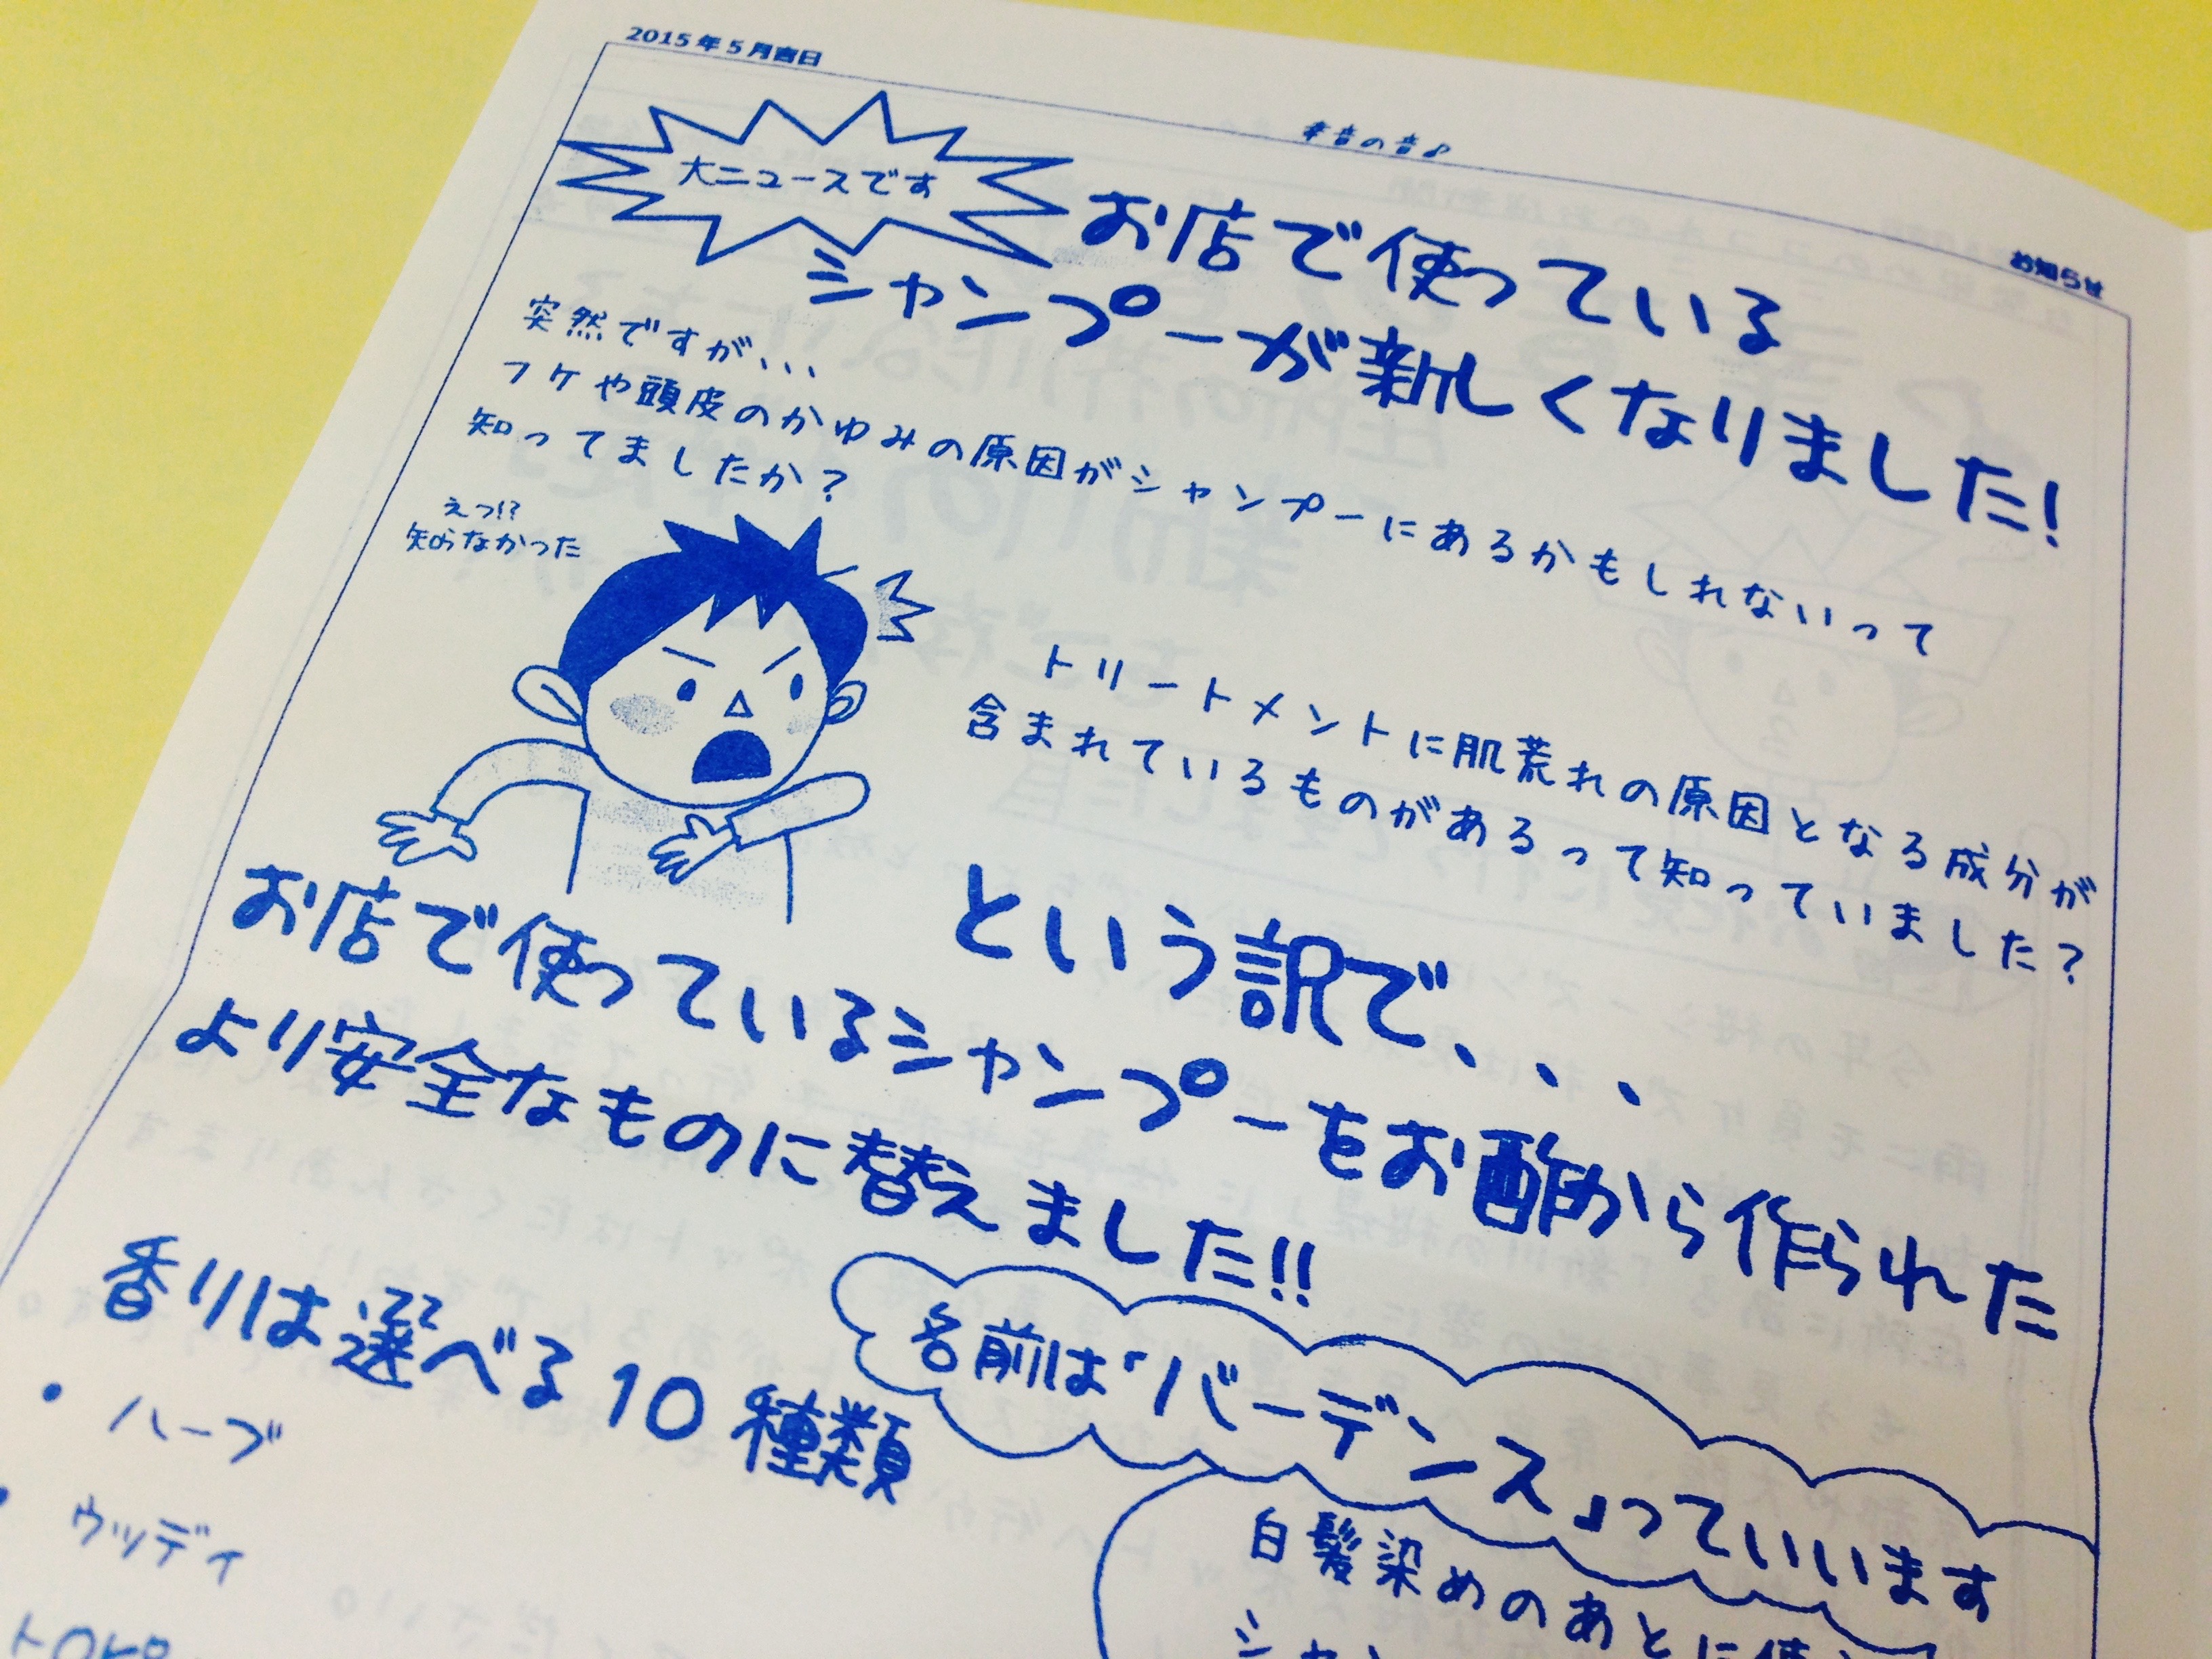 2015年5月吉日
幸音の音♪
お知らせ
大ニュースです
お店で使っている
シャンプーが新しくなりました!
突然ですが、、、
フケや頭皮のかゆみの原因がシャンプーにあるかもしれないって
知ってましたか?
えっ!?
知らなかった
トリートメントに肌荒れの原因となる成分が
含まれているものがあるって知っていました?
という訳で、、、、
お店で使っているシャンプーをお酢から作られた
より安全なものに替えました!!
香りは選べる10種類
名前は「バーデンス」っていいます
・ハーブ
・ウッディ
白髪染めのあとに使